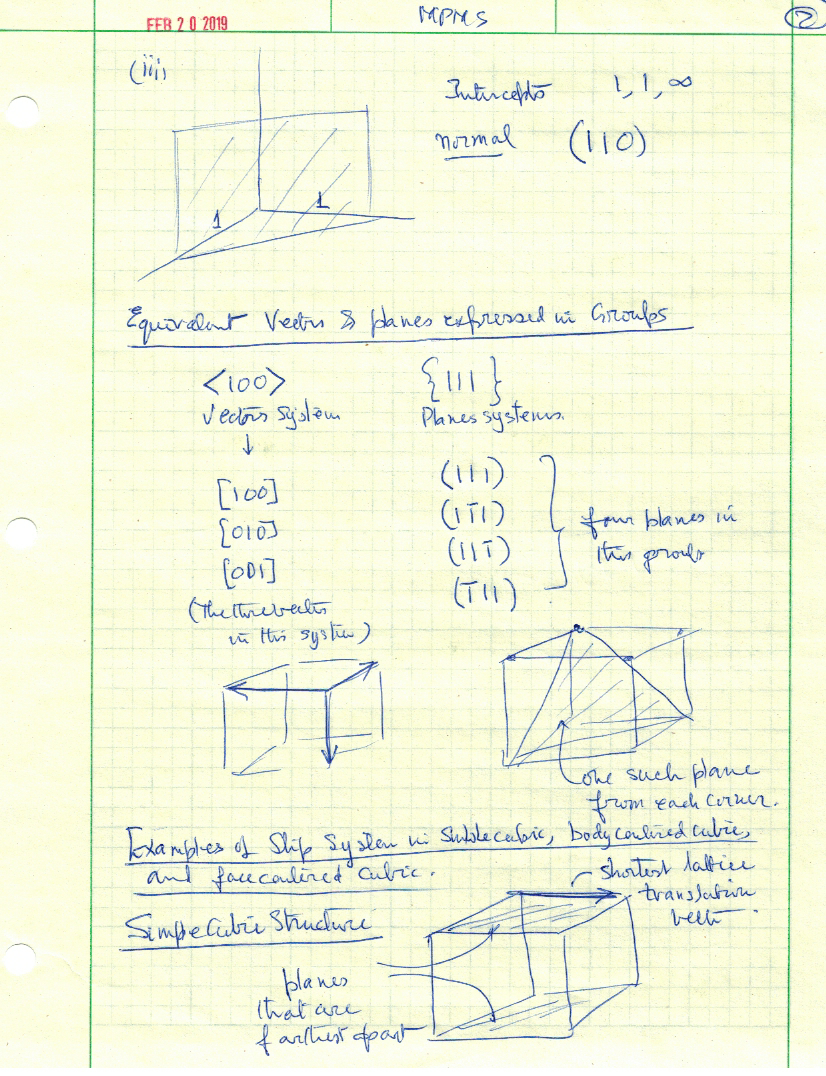 FEB 20 2019
MPMS
2
(iii)
Intercepts 1, 1, ∞
normal (110)
1
1
Equivalent Vectors & planes expressed in Groups
<100>
{111}
Vectors System
Planes systems.
↓
[100]
[010]
[001]
(The three vectors
in this system)
(111)
(11̅1)
(111̅)
(1̅11)
four planes in
this group
one such plane
from each corner.
Examples of Slip System in Simple cubic, body centered cubic,
and face centered cubic.
shortest lattice
translation
vector.
Simple Cubic Structure
planes
that are
farthest apart